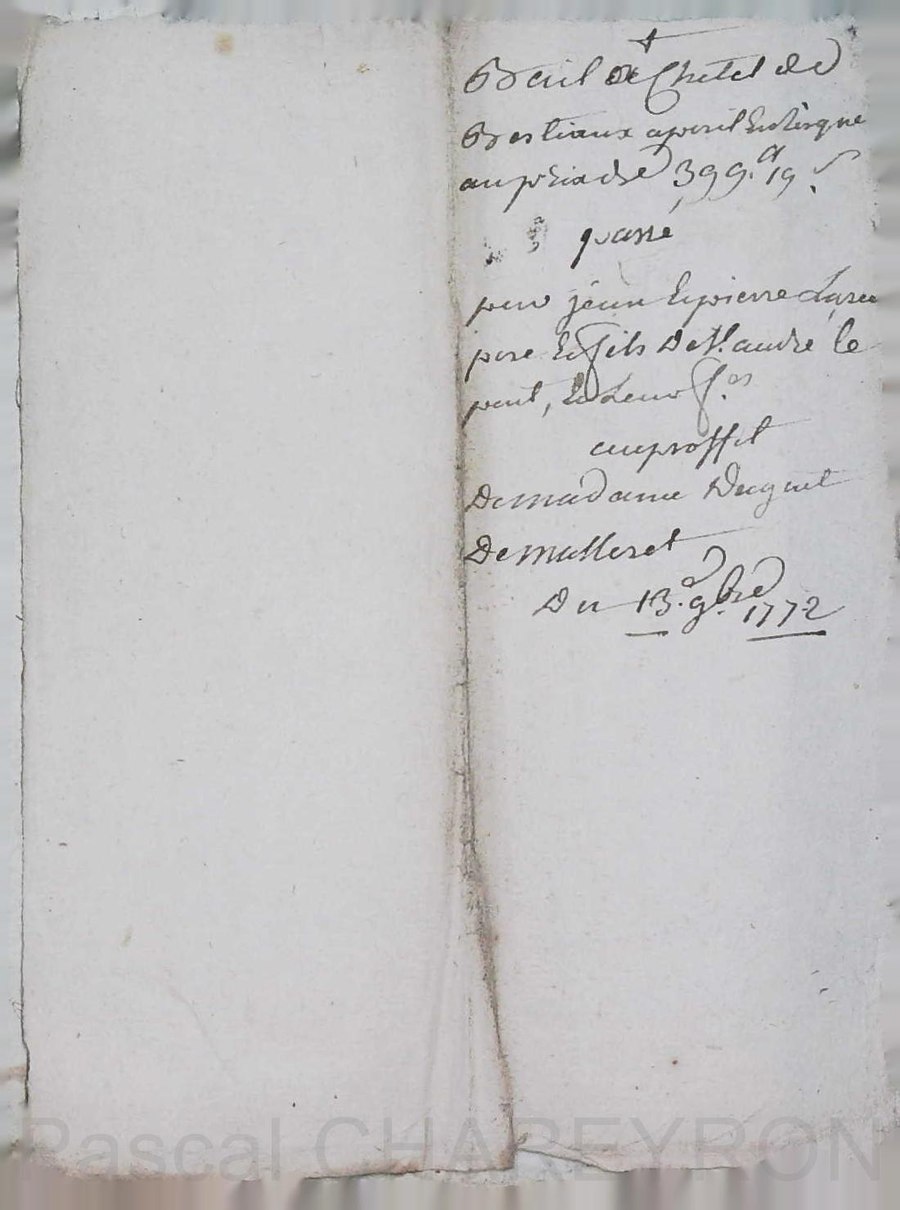 Bail de Chetel de
Bestiaux a peril Et Risque
au prix de 399.ᵗᵗ 19 ˢ.
passé
par jean Et pierre
pere Et fils De Sᵗ. andré le
pont, Et Leurs fᵉˢ
au proffit
De Madame Duguet
De Malleret
Du 13.ᵉ 9.bre 1772
Pascal CHAREYRON